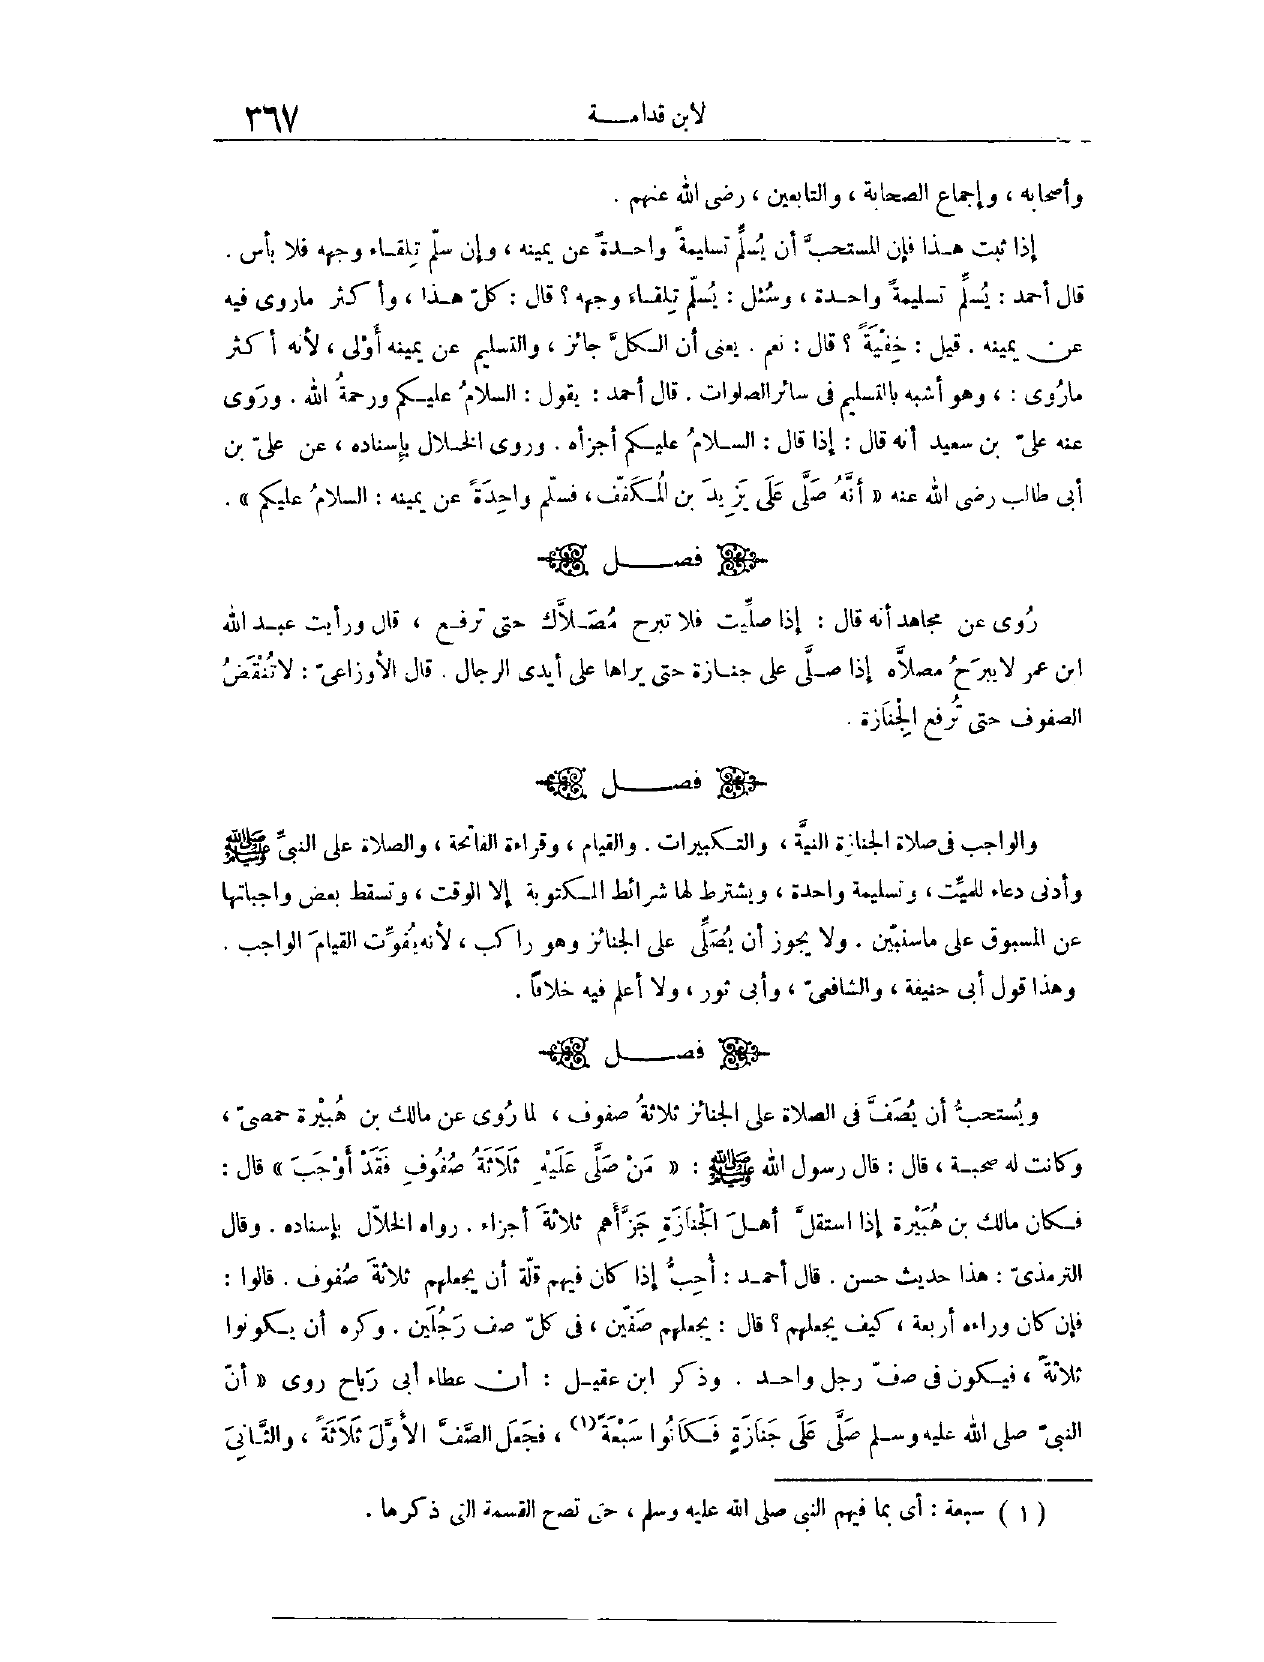 لابن قدامـــة ٣٦٧
وأصحابه ، وإجماع الصحابة ، والتابعين ، رضى الله عنهم .
إذا ثبت هـذا فإن المستحبَّ أن يُسلِّم تسليمةً واحـدةً عن يمينه ، وإن سلّم تِلقـاء وجهه فلا بأس .
قال أحمد : يُسلِّم تسليمةً واحـدة ، وسُئل : يُسلّم تِلقـاءَ وجهه ؟ قال : كلّ هـذا ، وأكثر ماروى فيه
عن يمينه . قيل : خِفْيَةً ؟ قال : نعم . يعنى أن الـكلَّ جائز ، والتسليم عن يمينه أَوْلى ، لأنه أكثر
مارُوى : ، وهو أشبه بالتسليم فى سائر الصلوات . قال أحمد : يقول : السلامُ عليـكم ورحمةُ الله . ورَوى
عنه علىّ بن سعيد أنه قال : إذا قال : السلامُ عليـكم أجزأه . وروى الخـلال بإسناده ، عن علىّ بن
أبى طالب رضى الله عنه « أنَّهُ صَلَّى عَلَى يَزِيدَ بن المُـكَفَّف ، فسلّم واحِدَةً عن يمينه : السلامُ عليكم » .
فصـــــل
رُوى عن مجاهد أنه قال : إذا صلّيت فلا تبرح مُصَـلاَّك حتى ترفـع ، قال ورأيت عبـد الله
ابن عمر لايبرَحُ مصلاَّه إذا صـلَّى على جنـازة حتى يراها على أيدى الرجال . قال الأوزاعىّ : لاتُنْقَضُ
الصفوف حتى تُرفع الجِْنَازة .
فصـــــل
والواجب فى صلاة الجنازة النيَّة ، والتـكبيرات . والقيام ، وقراءة الفاتحة ، والصلاة على النبىِّ ﷺ
وأدنى دعاء للميِّت ، وتسليمة واحدة ، ويشترط لها شرائط المـكتوبة إلا الوقت ، وتسقط بعض واجباتها
عن المسبوق على ماسنبيّن . ولا يجوز أن يُصَلِّى على الجنائز وهو راكب ، لأنه يُفوِّت القيامَ الواجب .
وهذا قول أبى حنيفة ، والشافعىّ ، وأبى ثور ، ولا أعلم فيه خلافاً .
فصـــــل
ويُستحبُّ أن يُصَفَّ فى الصلاة على الجنائز ثلاثةُ صفوف ، لما رُوى عن مالك بن هُبيْرة حمصىّ ،
وكانت له صحبـة ، قال : قال رسول الله ﷺ : « مَنْ صَلَّى عَلَيْهِ ثَلَاثَةُ صُفُوفٍ فَقَدْ أَوْجَبَ » قال :
فـكان مالك بن هُبَيْرة إذا استقلَّ أهـلَ الْجَنَازَةِ جَزَّأَهم ثلاثةَ أجزاء . رواه الخلاّل بإسناده . وقال
الترمذىّ : هذا حديث حسن . قال أحمـد : أُحِبُّ إذا كان فيهم قلّة أن يجعلهم ثلاثةَ صُفوف . قالوا :
فإن كان وراءه أربعة ، كيف يجعلهم ؟ قال : يجعلهم صَفّين ، فى كلّ صف رَجُلَين . وكره أن يـكونوا
ثلاثةً ، فيـكون فى صفّ رجل واحـد . وذكر ابن عقيـل : أن عطاء أبى رَباح روى « أنّ
النبىّ صلى الله عليه وسـلم صَلَّى عَلَى جَنَازَةٍ فَـكَانُوا سَبْعَةً (١) ، فجَعَل الصَّفَّ الأُوَّلَ ثَلَاثَةً ، والثَّـانِىَ
( ١ ) سبعة : أى بما فيهم النبى صلى الله عليه وسلم ، حتى تصح القسمة التى ذكرها .